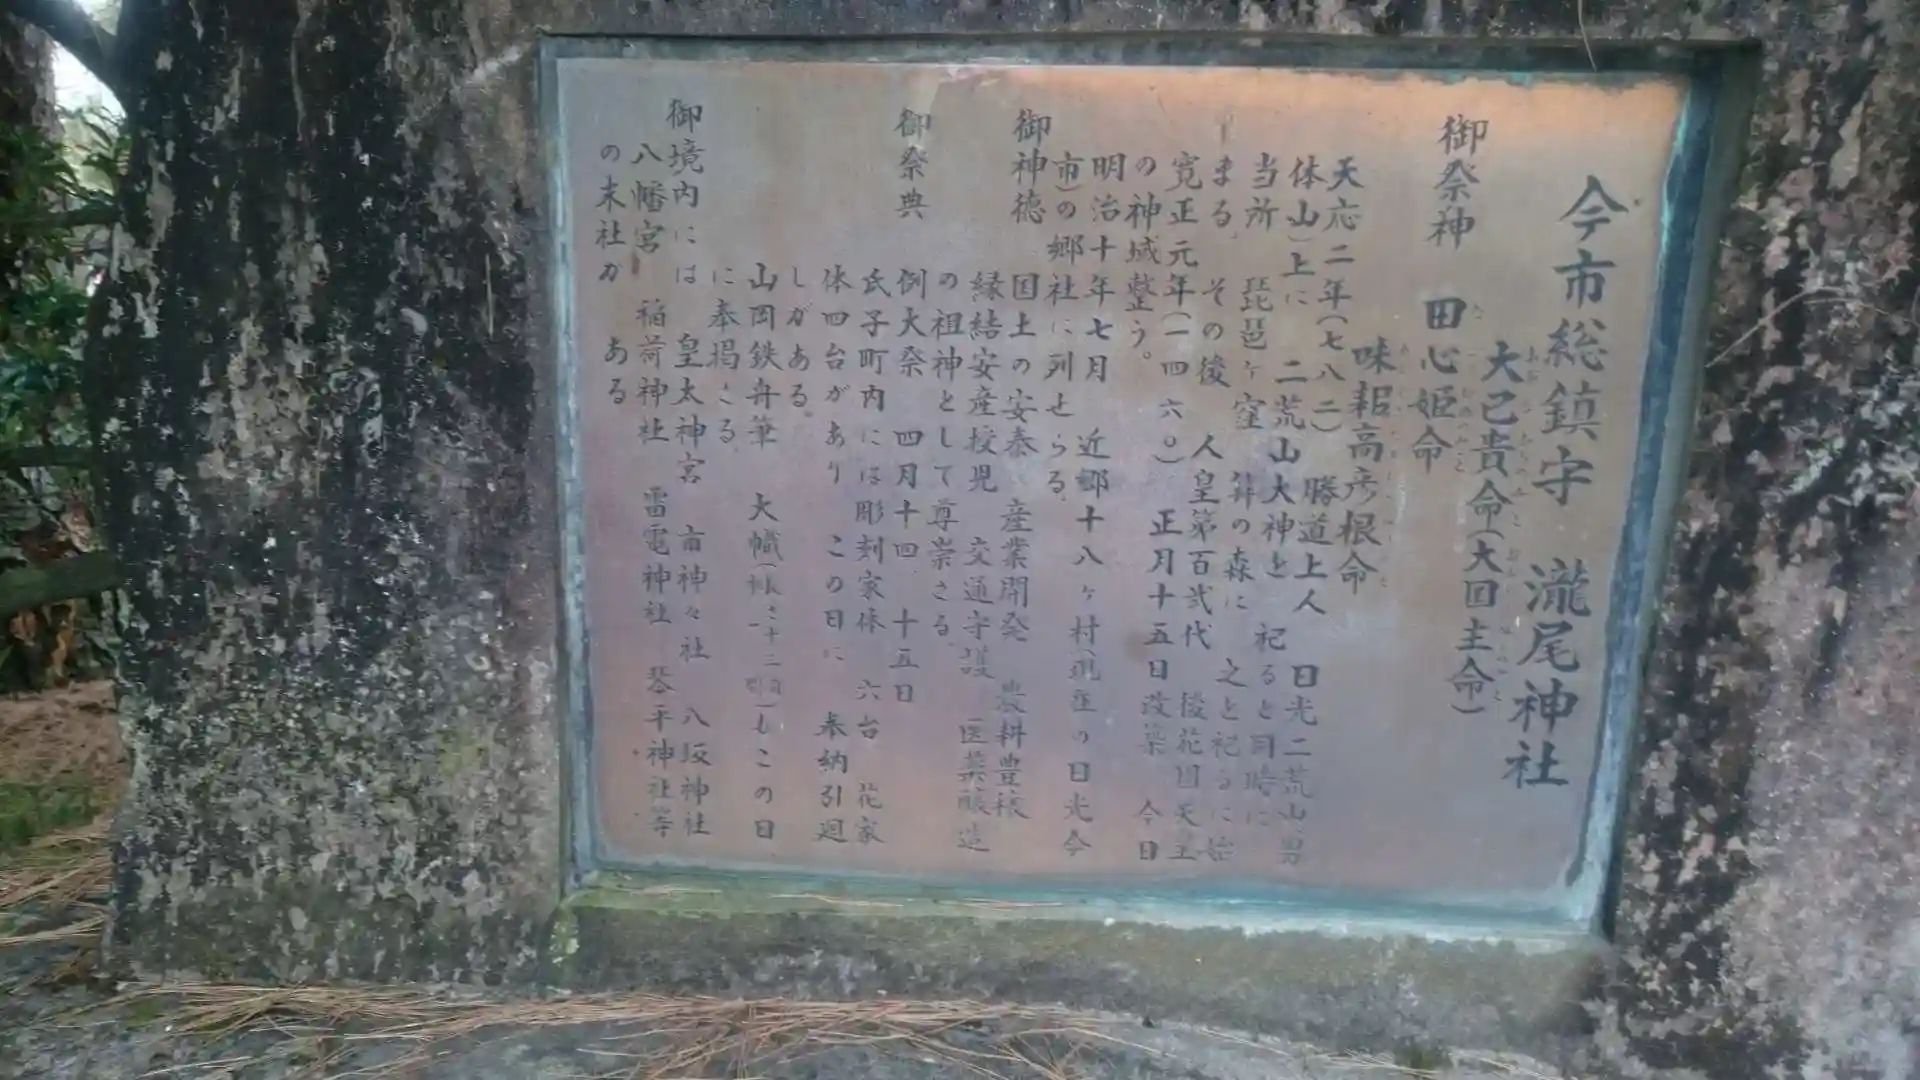 今市総鎮守 瀧尾神社
御祭神
大己貴命(大国主命)
田心姫命
味耜高彦根命
天応二年(七八二) 勝道上人 日光二荒山(男
体山)上に 二荒山大神と 祀ると同時に
当所 琵琶ヶ窪 の森に 之と祀るに始
まる。その後 人皇第百弐代 後花園天皇
寛正元年(一四六〇) 正月十五日改築 今日
の神域整う。
明治十年七月 近郷十八ヶ村(現在の日光今
市)の郷社に列せらる。
御神徳
国土の安泰 産業開発 農耕豊穣
縁結安産授児 交通守護 医薬醸造
の祖神として尊崇さる。
御祭典
例大祭 四月十四、十五日
氏子町内には彫刻家体 六台 花家
体四台があり この日に 奉納引廻
しがある。
山岡鉄舟筆 大幟( さ十三 )もこの日
に奉掲さる。
御境内には 皇太神宮 市神々社 八坂神社
八幡宮 稲荷神社 雷電神社 琴平神社等
の末社が ある